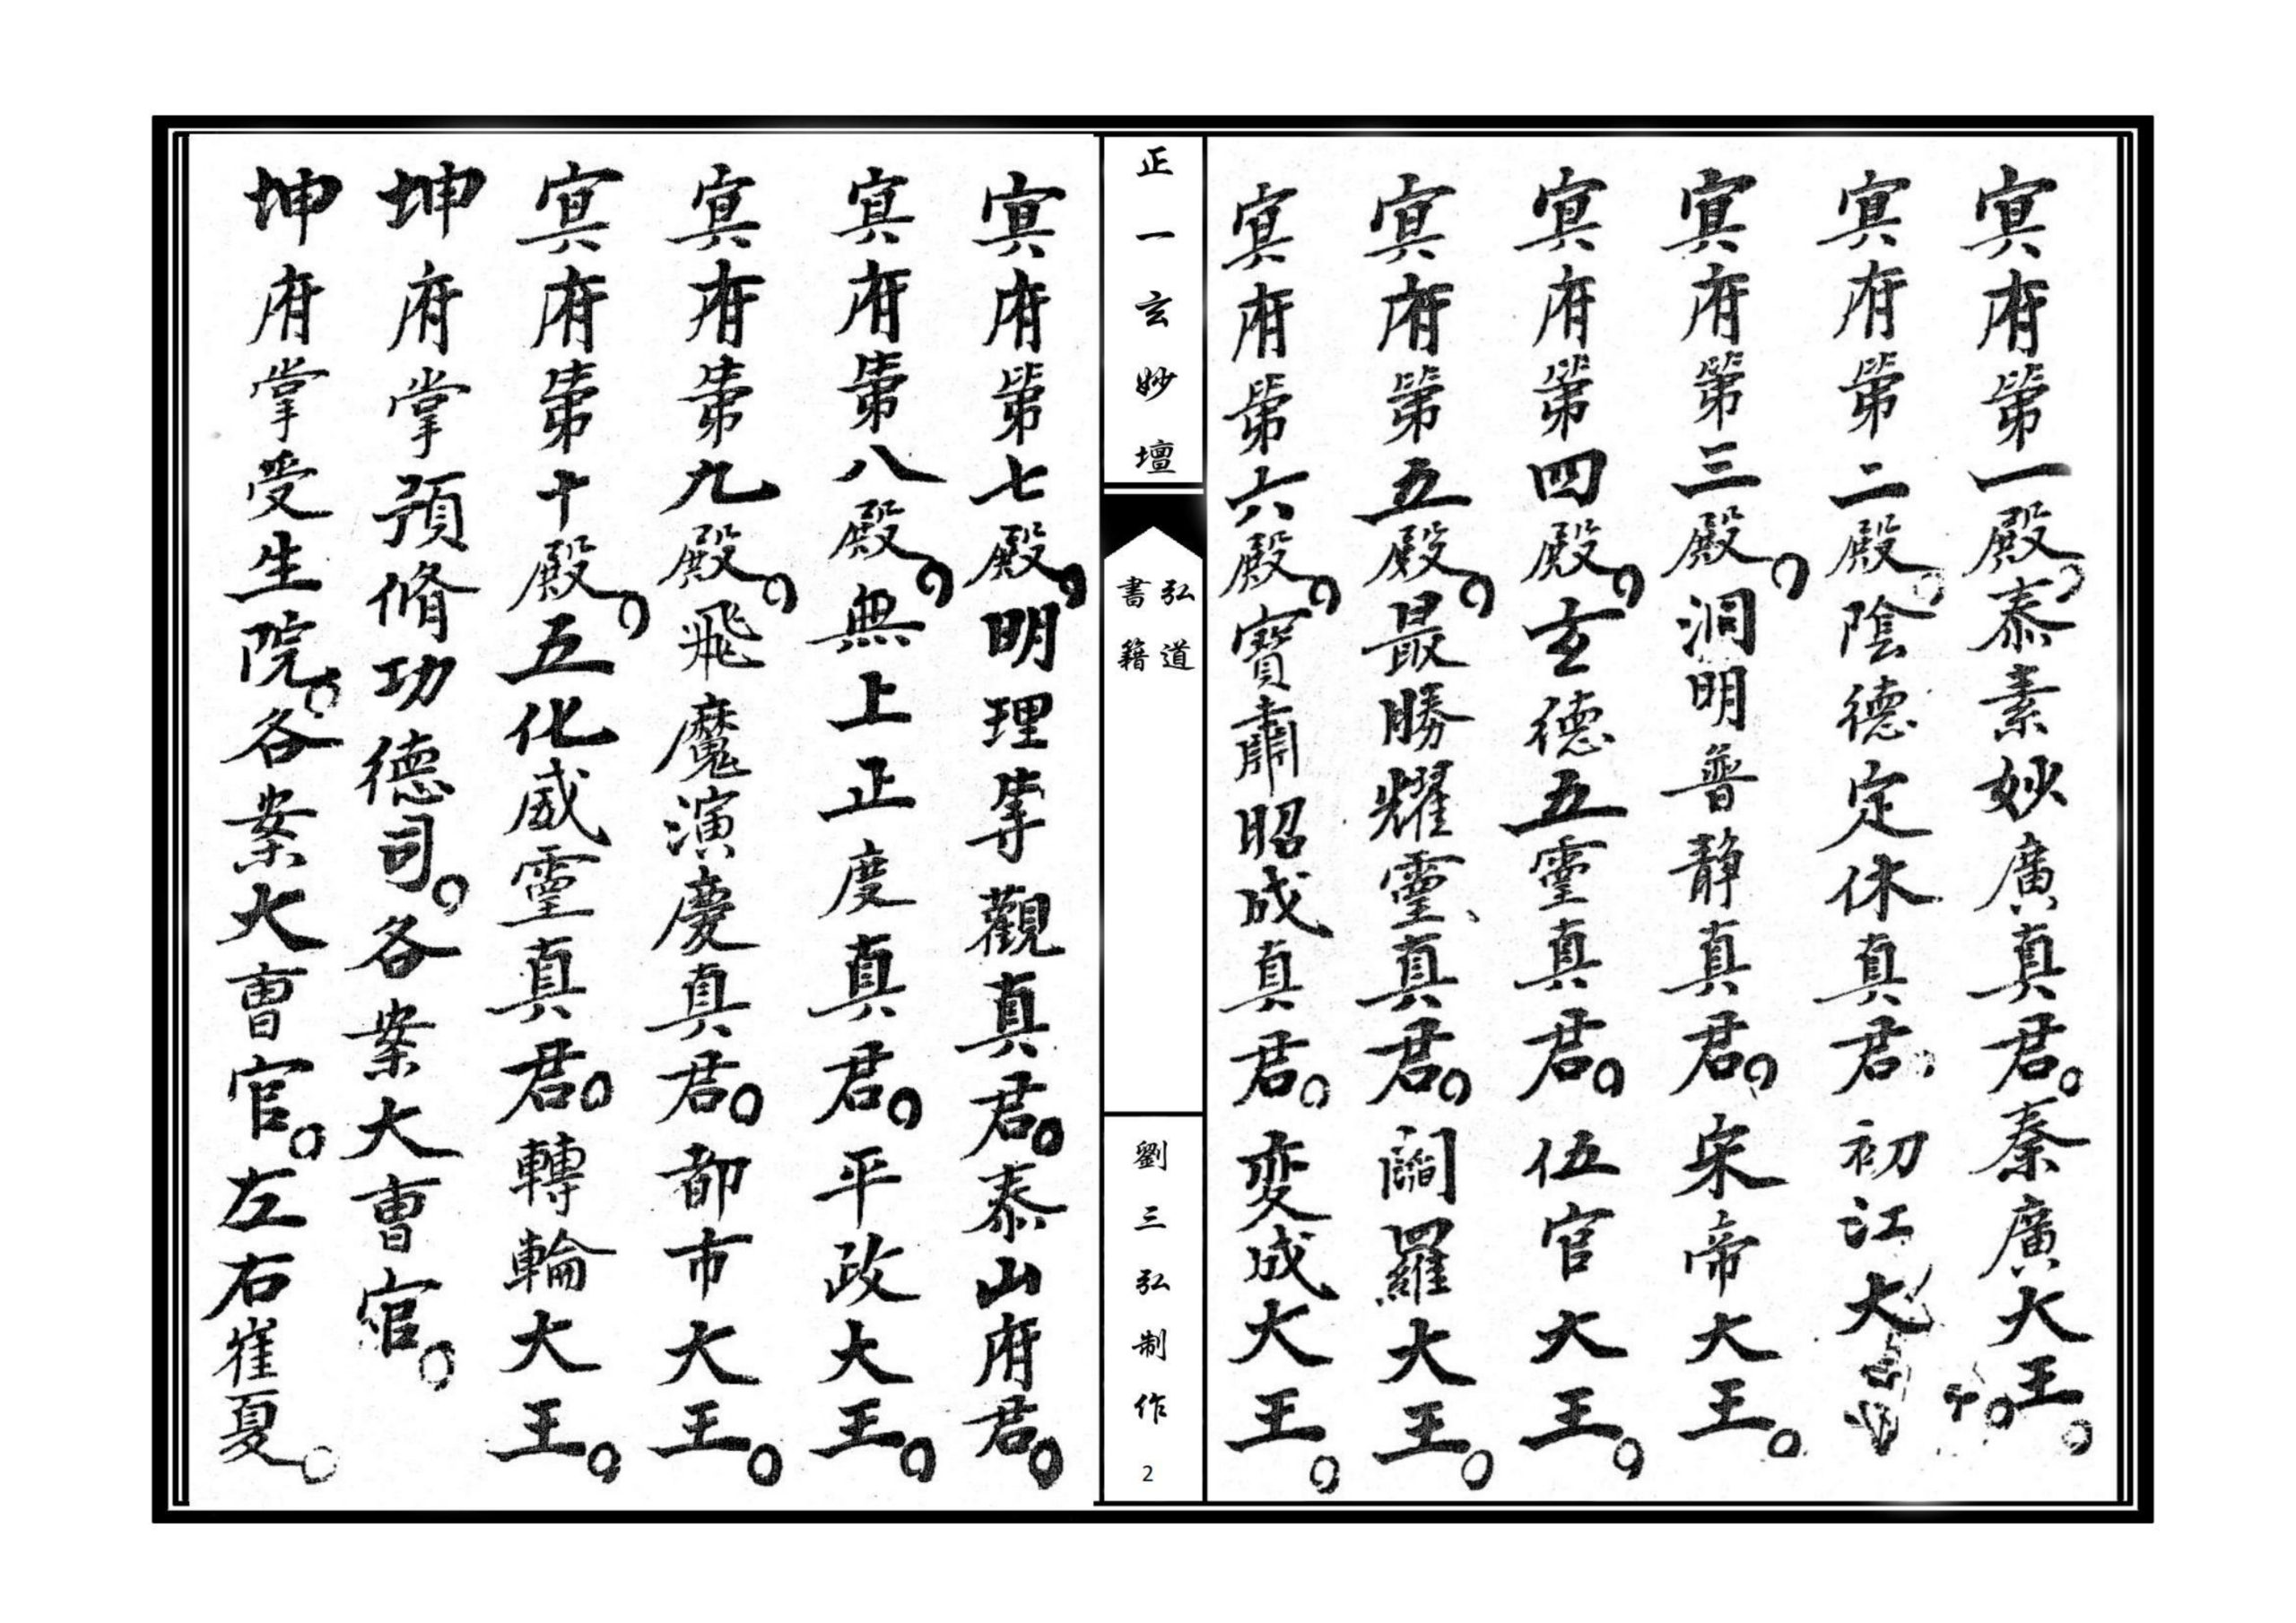 冥府第一殿。泰素妙廣真君。秦廣大王。
冥府第二殿。陰德定休真君。初江大
冥府第三殿。洞明普静真君。宋帝大王。
冥府第四殿。玄德五靈真君。伍官大王。
冥府第五殿。最勝耀靈真君。閻羅大王。
冥府第六殿。寶肅昭成真君。変成大王。
正一玄妙壇
弘道
書籍
劉三弘制作
2
冥府第七殿。明理等觀真君。泰山府君。
冥府第八殿。無上正度真君。平政大王。
冥府第九殿。飛魔演慶真君。都市大王。
冥府第十殿。五化威靈真君。轉輪大王。
坤府掌預修功德司。各案大曹官。
坤府掌受生院。各案大曹官。左右崔夏。